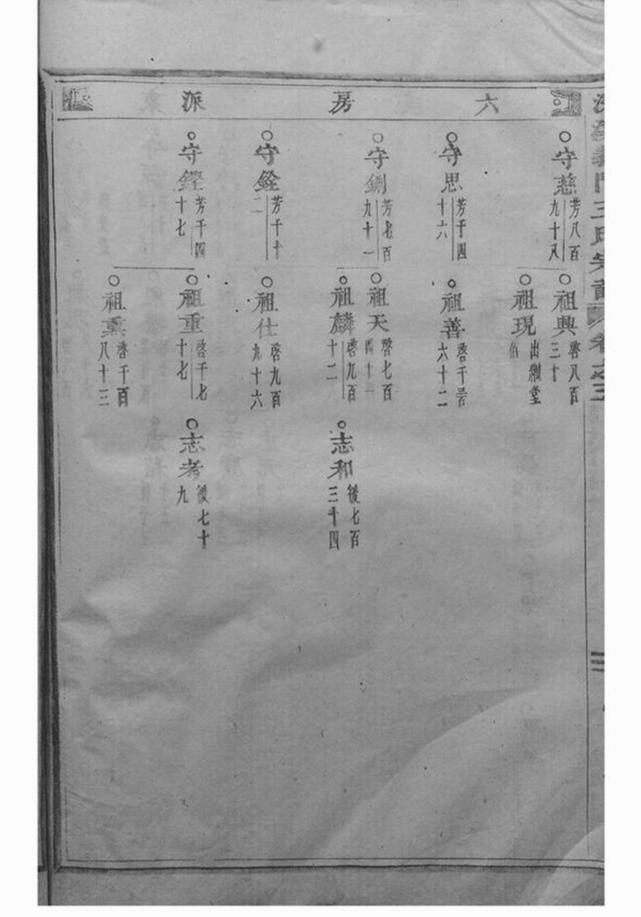 六房派
義門王氏宗譜 卷之三
守慈 芳八百九十八
守思 芳千四十六
守鍘 芳七百九十一
守銓 芳千十二
守鏗 芳千四十七
祖興 啓八百三十
祖現 出繼堂伯
祖善 啓千
六十二
祖天 啓七百四十一
祖麟 啓九百十二
祖仕 啓九百九十六
祖重 啓千七十七
祖熏 啓千百八十三
志和 後七百三十四
志考 後七十九